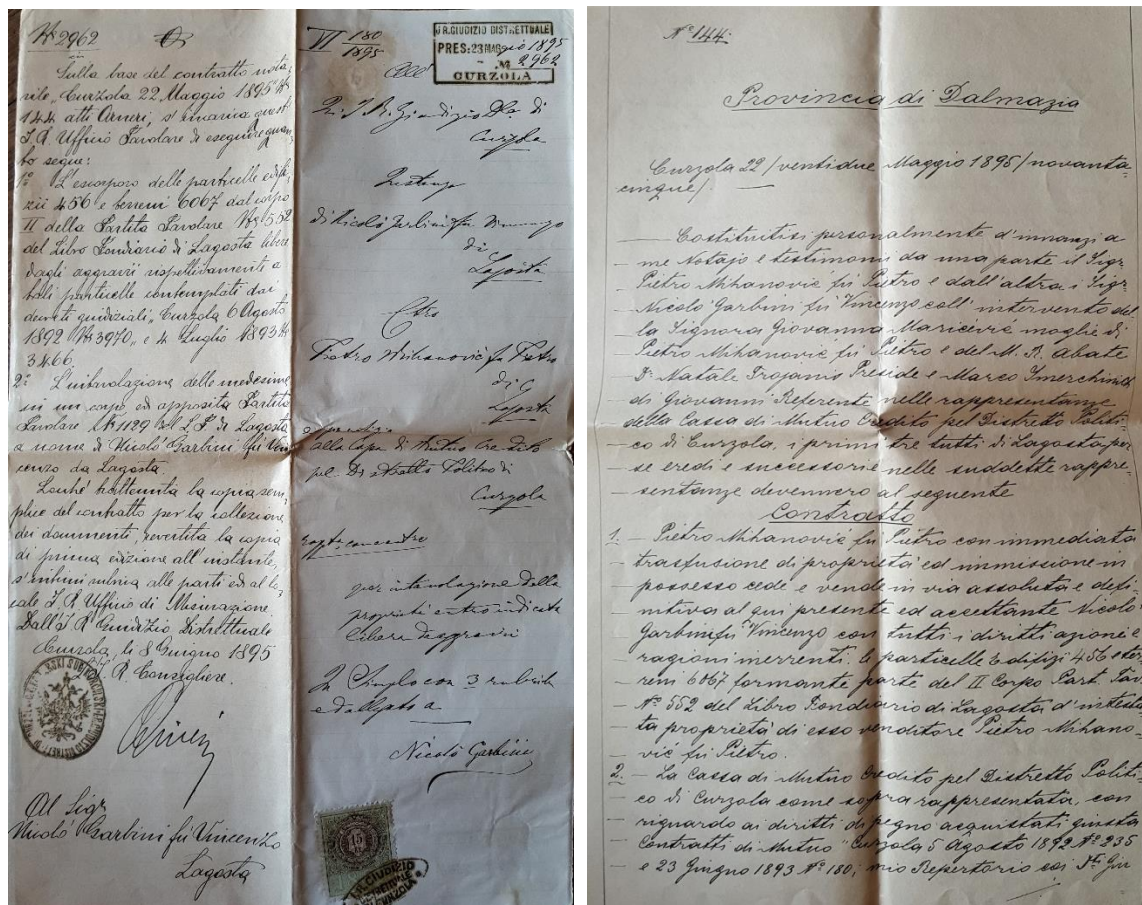 No 2962
Sulla base del contratto nota-
rile "Curzola 22 Maggio 1895" No
144 atti Arneri, s'incarica questo
I. R. Ufficio Tavolare di eseguire quan-
to segue:
1o L'escorporo delle particelle edifi-
zii 456 e terreni 6067 dal corpo
II della Partita Tavolare No 552
del Libro Fondiario di Lagosta libere
dagli aggravii rispettivamente a
tali particelle contemplati dai
decreti giudiziali "Curzola 6 Agosto
1892 No 3970" e 4 Luglio 1893 No
3466.
2o L'intavolazione delle medesime
in un corpo ed apposita Partita
Tavolare No 1129 del L. F. di Lagosta
a nome di Nicolò Garbini fu Vin-
cenzo da Lagosta.
Locchè trattenuta la copia sem-
plice del contratto per la collezione
dei documenti, revertita la copia
di prima edizione all'instante,
s'intimi rubrica alle parti ed al lo-
cale I. R. Ufficio di Misurazione
Dall'I. R. Giudizio Distrettuale
Curzola, li 8 Giugno 1895
I. R. Consigliere.
Al Sigr
Nicolò Garbini fu Vincenzo
Lagosta
VI 180
1895
I.R. GIUDIZIO DISTRETTUALE
PRES: 23 Maggio 1895
No 2962
CURZOLA
All'
I. R. Giudizio Dle di
Curzola
Istanza
di Nicolò Garbini fu Vincenzo
di
Lagosta
Ctro
Pietro Mihanović fu Pietro
di
Lagosta
alla Cassa di Mutuo Credito
pel Distretto Politico di
Curzola
per intavolazione della
proprietà entro indicata
libera d'aggravii
In Simplo con 3 rubriche
ed allegato a
Nicolò Garbini
15
I.R. GIUDIZIO
DISTRETTUALE
CURZOLA
No 144.
Provincia di Dalmazia
Curzola 22 /ventidue Maggio 1895 /novanta-
cinque/.
Costituitisi personalmente d'innanzi a
me Notajo e testimoni da una parte il Sigr
Pietro Mihanović fu Pietro e dall'altra i Sigr
Nicolò Garbini fu Vincenzo coll'intervento del
la Signora Giovanna Maricević moglie di
Pietro Mihanović fu Pietro e del M. R. Abate
Dn Natale Trojanis Preside e Marco Smerchinich
di Giovanni Referente nelle rappresentanze
della Cassa di Mutuo Credito pel Distretto Politi-
co di Curzola, i primi tre tutti di Lagosta per
se eredi e successori e nelle suddette rappre-
sentanze devennero al seguente
Contratto
1. - Pietro Mihanović fu Pietro con immediata
trasfusione di proprietà ed immissione in
possesso cede e vende in via assoluta e defi-
nitiva al qui presente ed accettante Nicolò
Garbini fu Vincenzo con tutti i diritti azione e
ragioni inerrenti. le particelle Edifizi 456 e ter
reni 6067 formante parte del II Corpo Part. Tav
No 552 del Libro Fondiario di Lagosta d'intesta-
ta proprietà di esso venditore Pietro Mihano-
vić fu Pietro.
2. - La Cassa di Mutuo Credito pel Distretto Politi-
co di Curzola come sopra rappresentata, con
riguardo ai diritti di pegno acquistati giusta
Contratti di Mutuo "Curzola 5 Agosto 1892 No 235
e 23 Giugno 1893 No 180, mio Repertorio coi